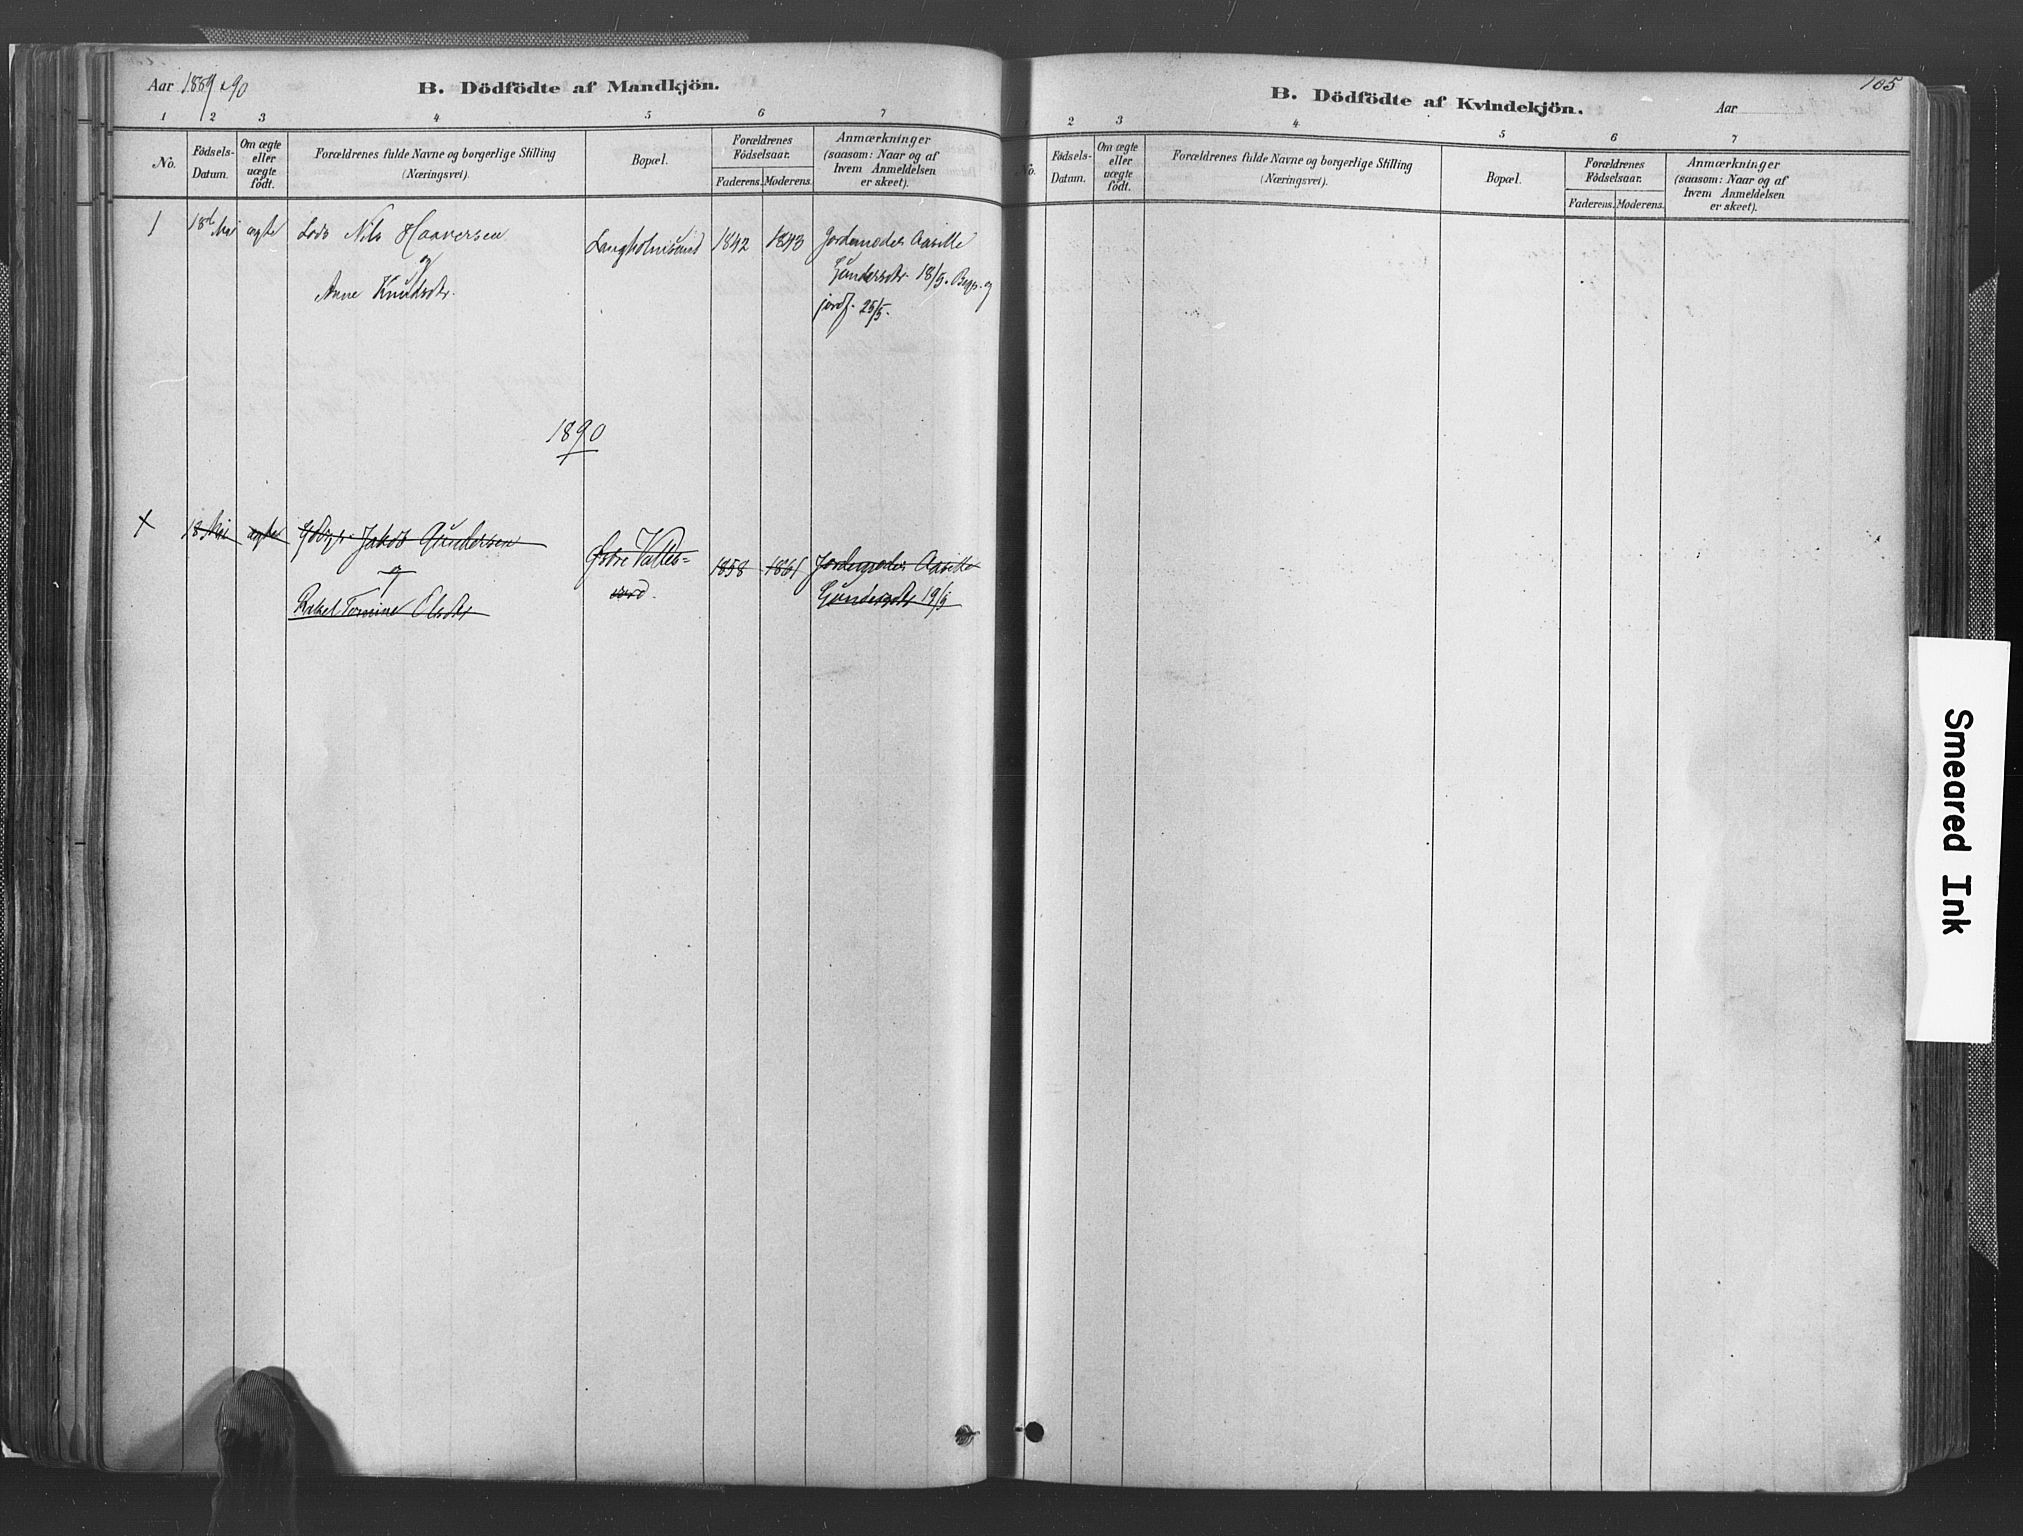 Aar 1889 & 90
B. Dödfödte af Mandkjön.
1 2 3 4 5 6 7
No.
Födsels-
Datum.
Om ægte
eller
uægte
födt.
Forældrenes fulde Navne og borgerlige Stilling
(Næringsvei).
Bopæl.
Forældrenes
Födselsaar.
Faderens. Moderens.
Anmærkninger
(saasom: Naar og af
hvem Anmeldelsen
er skeet).
1 18de Mai ægte Lods Nils Haaversen
og
Anne Knudsdtr.
Langholmsund 1842 1843 Jordemoder Aasille
Gundersdtr. 18/5. Begr. og
jordf. 25/5.
1890
18 Mai ægte Jakob Gundersen
og
Rakel Tomine Olsdtr
Østre Valles-
værd.
1858 1861 Jordemoder Aasille
Gundersdtr 19/5
105
B. Dödfödte af Kvindekjön.
Aar
2 3 4 5 6 7
No.
Födsels-
Datum.
Om ægte
eller
uægte
födt.
Forældrenes fulde Navne og borgerlige Stilling
(Næringsvei).
Bopæl.
Forældrenes
Födselsaar.
Faderens. Moderens.
Anmærkninger
(saasom: Naar og af
hvem Anmeldelsen
er skeet).
Smeared Ink